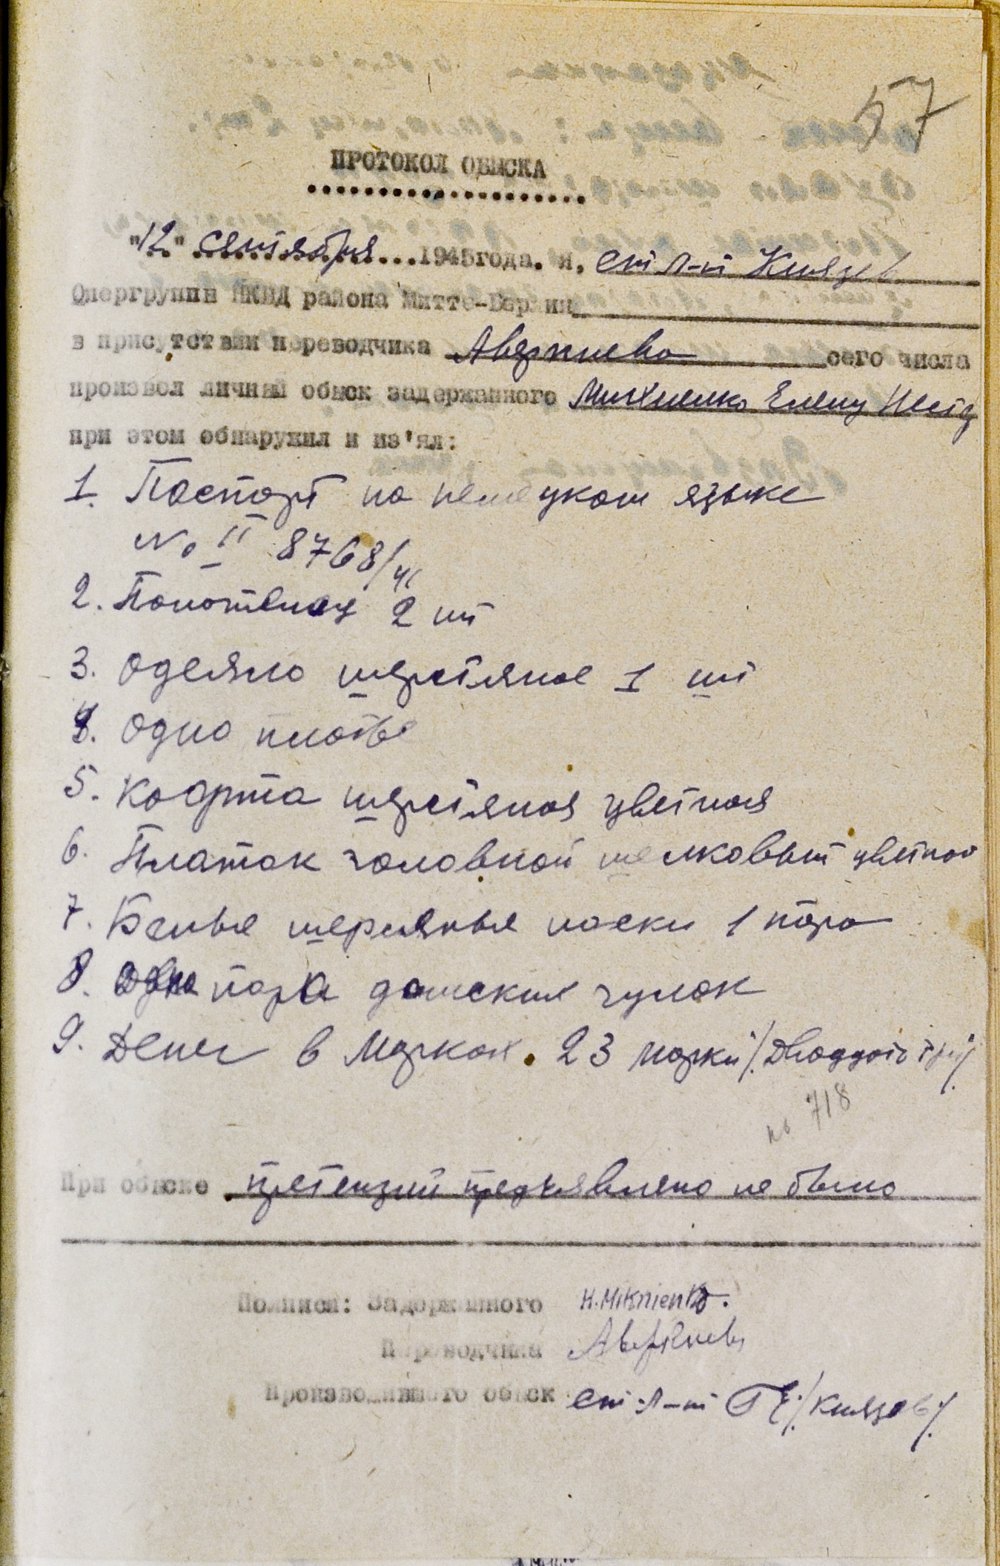 57
ПРОТОКОЛ ОБЫСКА
"12" сентября 1945года. Я, ст л-т Князев
Опергруппи НКВД района Митте-Берлин
в присутствии переводчика Аверкиева сего числа
произвел личный обыск задержанного Михненко Елену
при этом обнаружил и из'ял:
1. Паспорт на немецком языке
№ II 8768/41
2. Полотенец 2 шт
3. Одеяло шерстяное 1 шт
4. Одно платье
5. Кофта шерстяная цветная
6. Платок головной шелковый цветной
7. Белье шерсянье носки 1 пара
8. пара дамских чулок
9. Денег в Марках. 23 марки /Двадцать три/
718
При обыске претензий предъявлено не было
Подписи: Задержанного H. Mikhienko.
Переводчика Аверкиев
Производившего обыск ст. л-т /Князев/